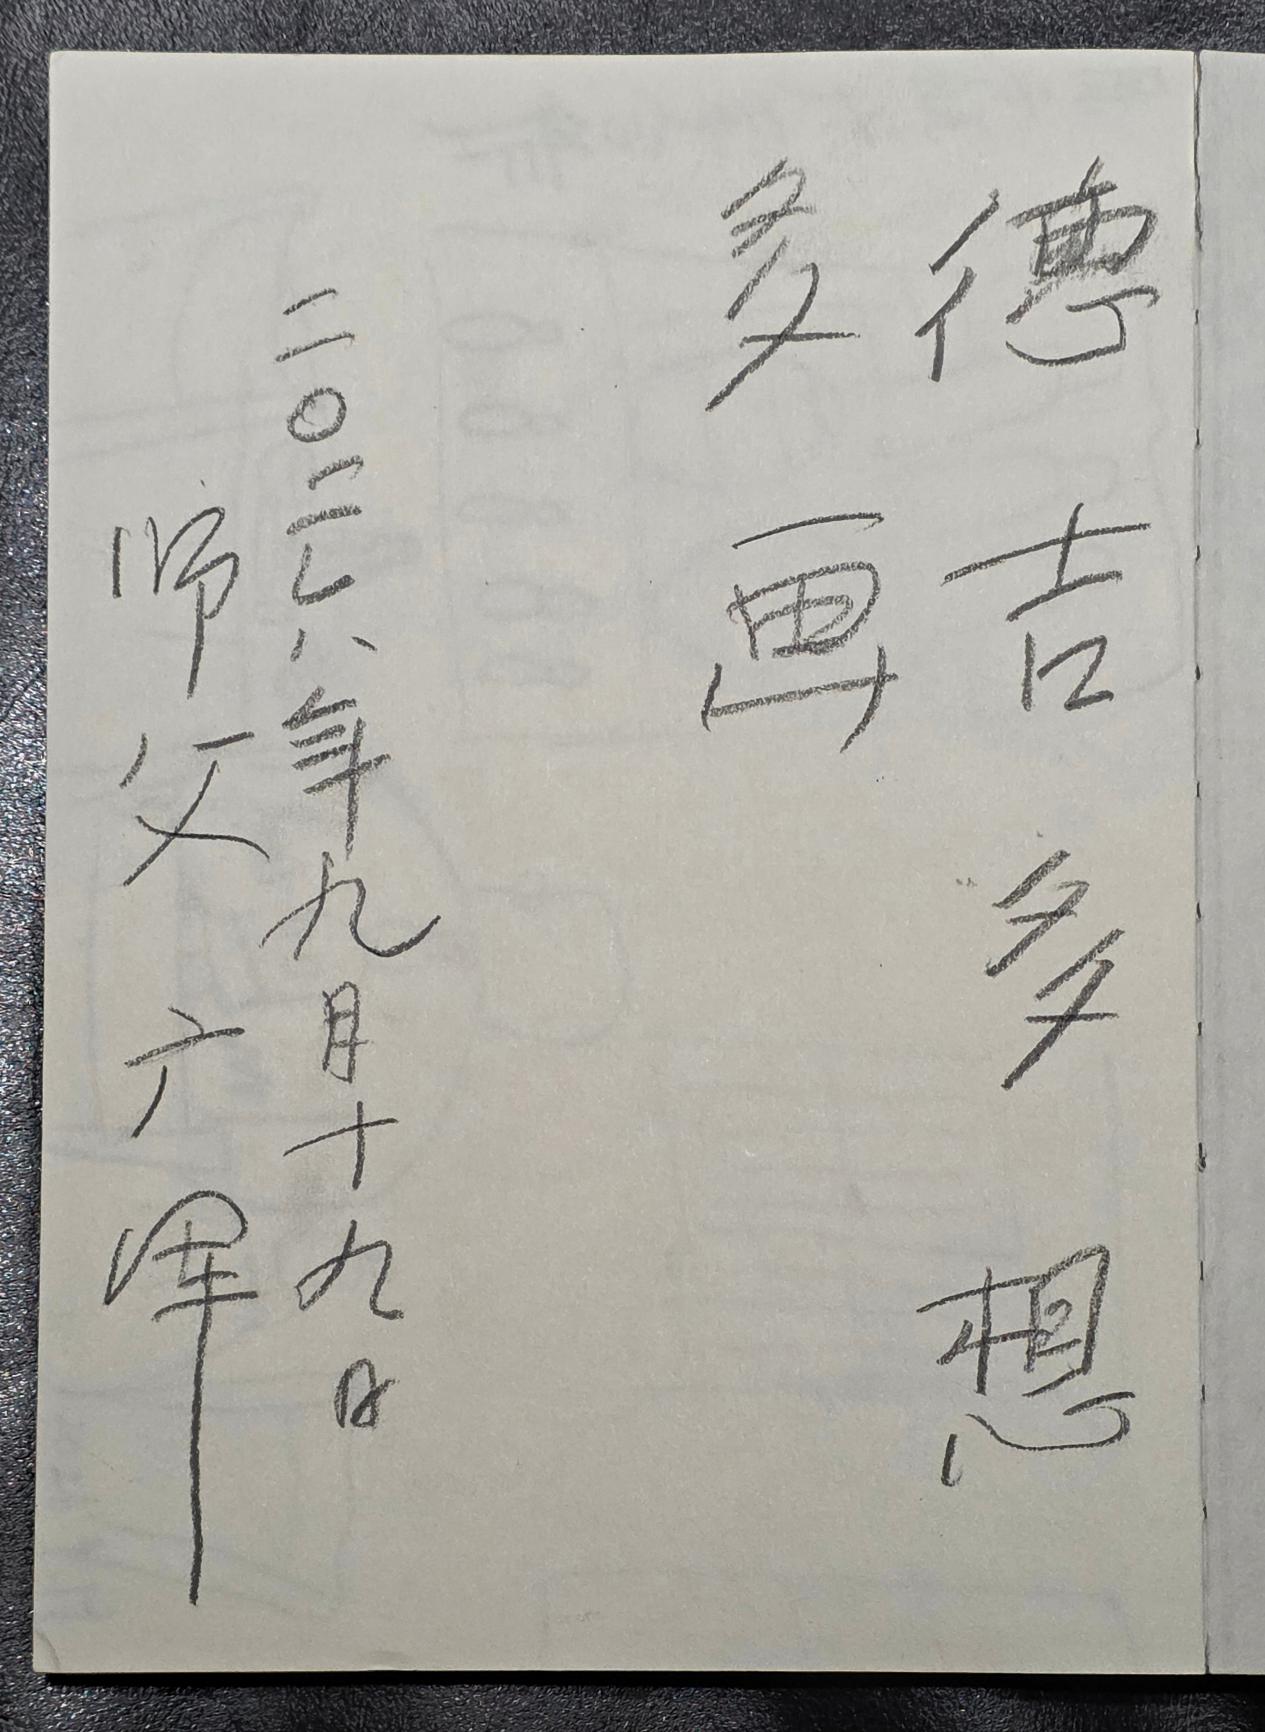 德吉多想
多画
二０二六年九月十九日
师父广